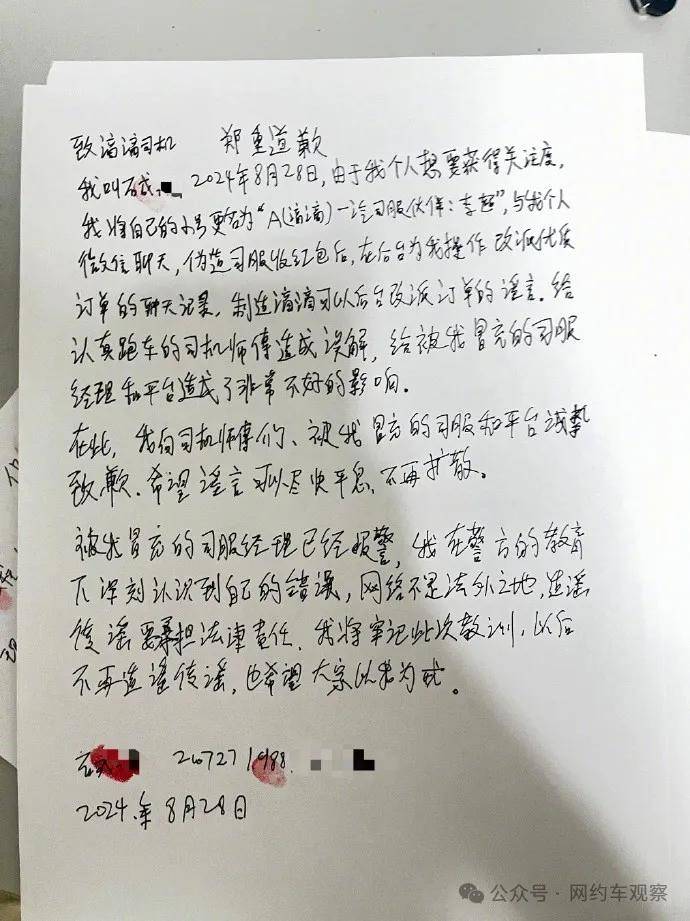 致滴滴司机 郑重道歉
我叫石成 2024年8月28日,由于我个人想要获得关注度,
我将自己的小号更名为“A(滴滴)一汽司服伙伴:李超”,与我个人
微信聊天,伪造司服收红包后,在后台为我操作改派优质
订单的聊天记录,制造滴滴可以后台改派订单的谣言.给
认真跑车的司机师傅造成误解,给被我冒充的司服
经理和平台造成了非常不好的影响.
在此,我向司机师傅们、被我冒充的司服和平台诚挚
致歉.希望谣言可以尽快平息、不再扩散。
被我冒充的司服经理已经报警,我在警方的教育
下深刻认识到自己的错误,网络不是法外之地,造谣
传谣要承担法律责任.我将牢记此次教训,以后
不再造谣传谣,也希望大家以我为戒。
2207271988
2024年8月28日
公众号·网约车观察